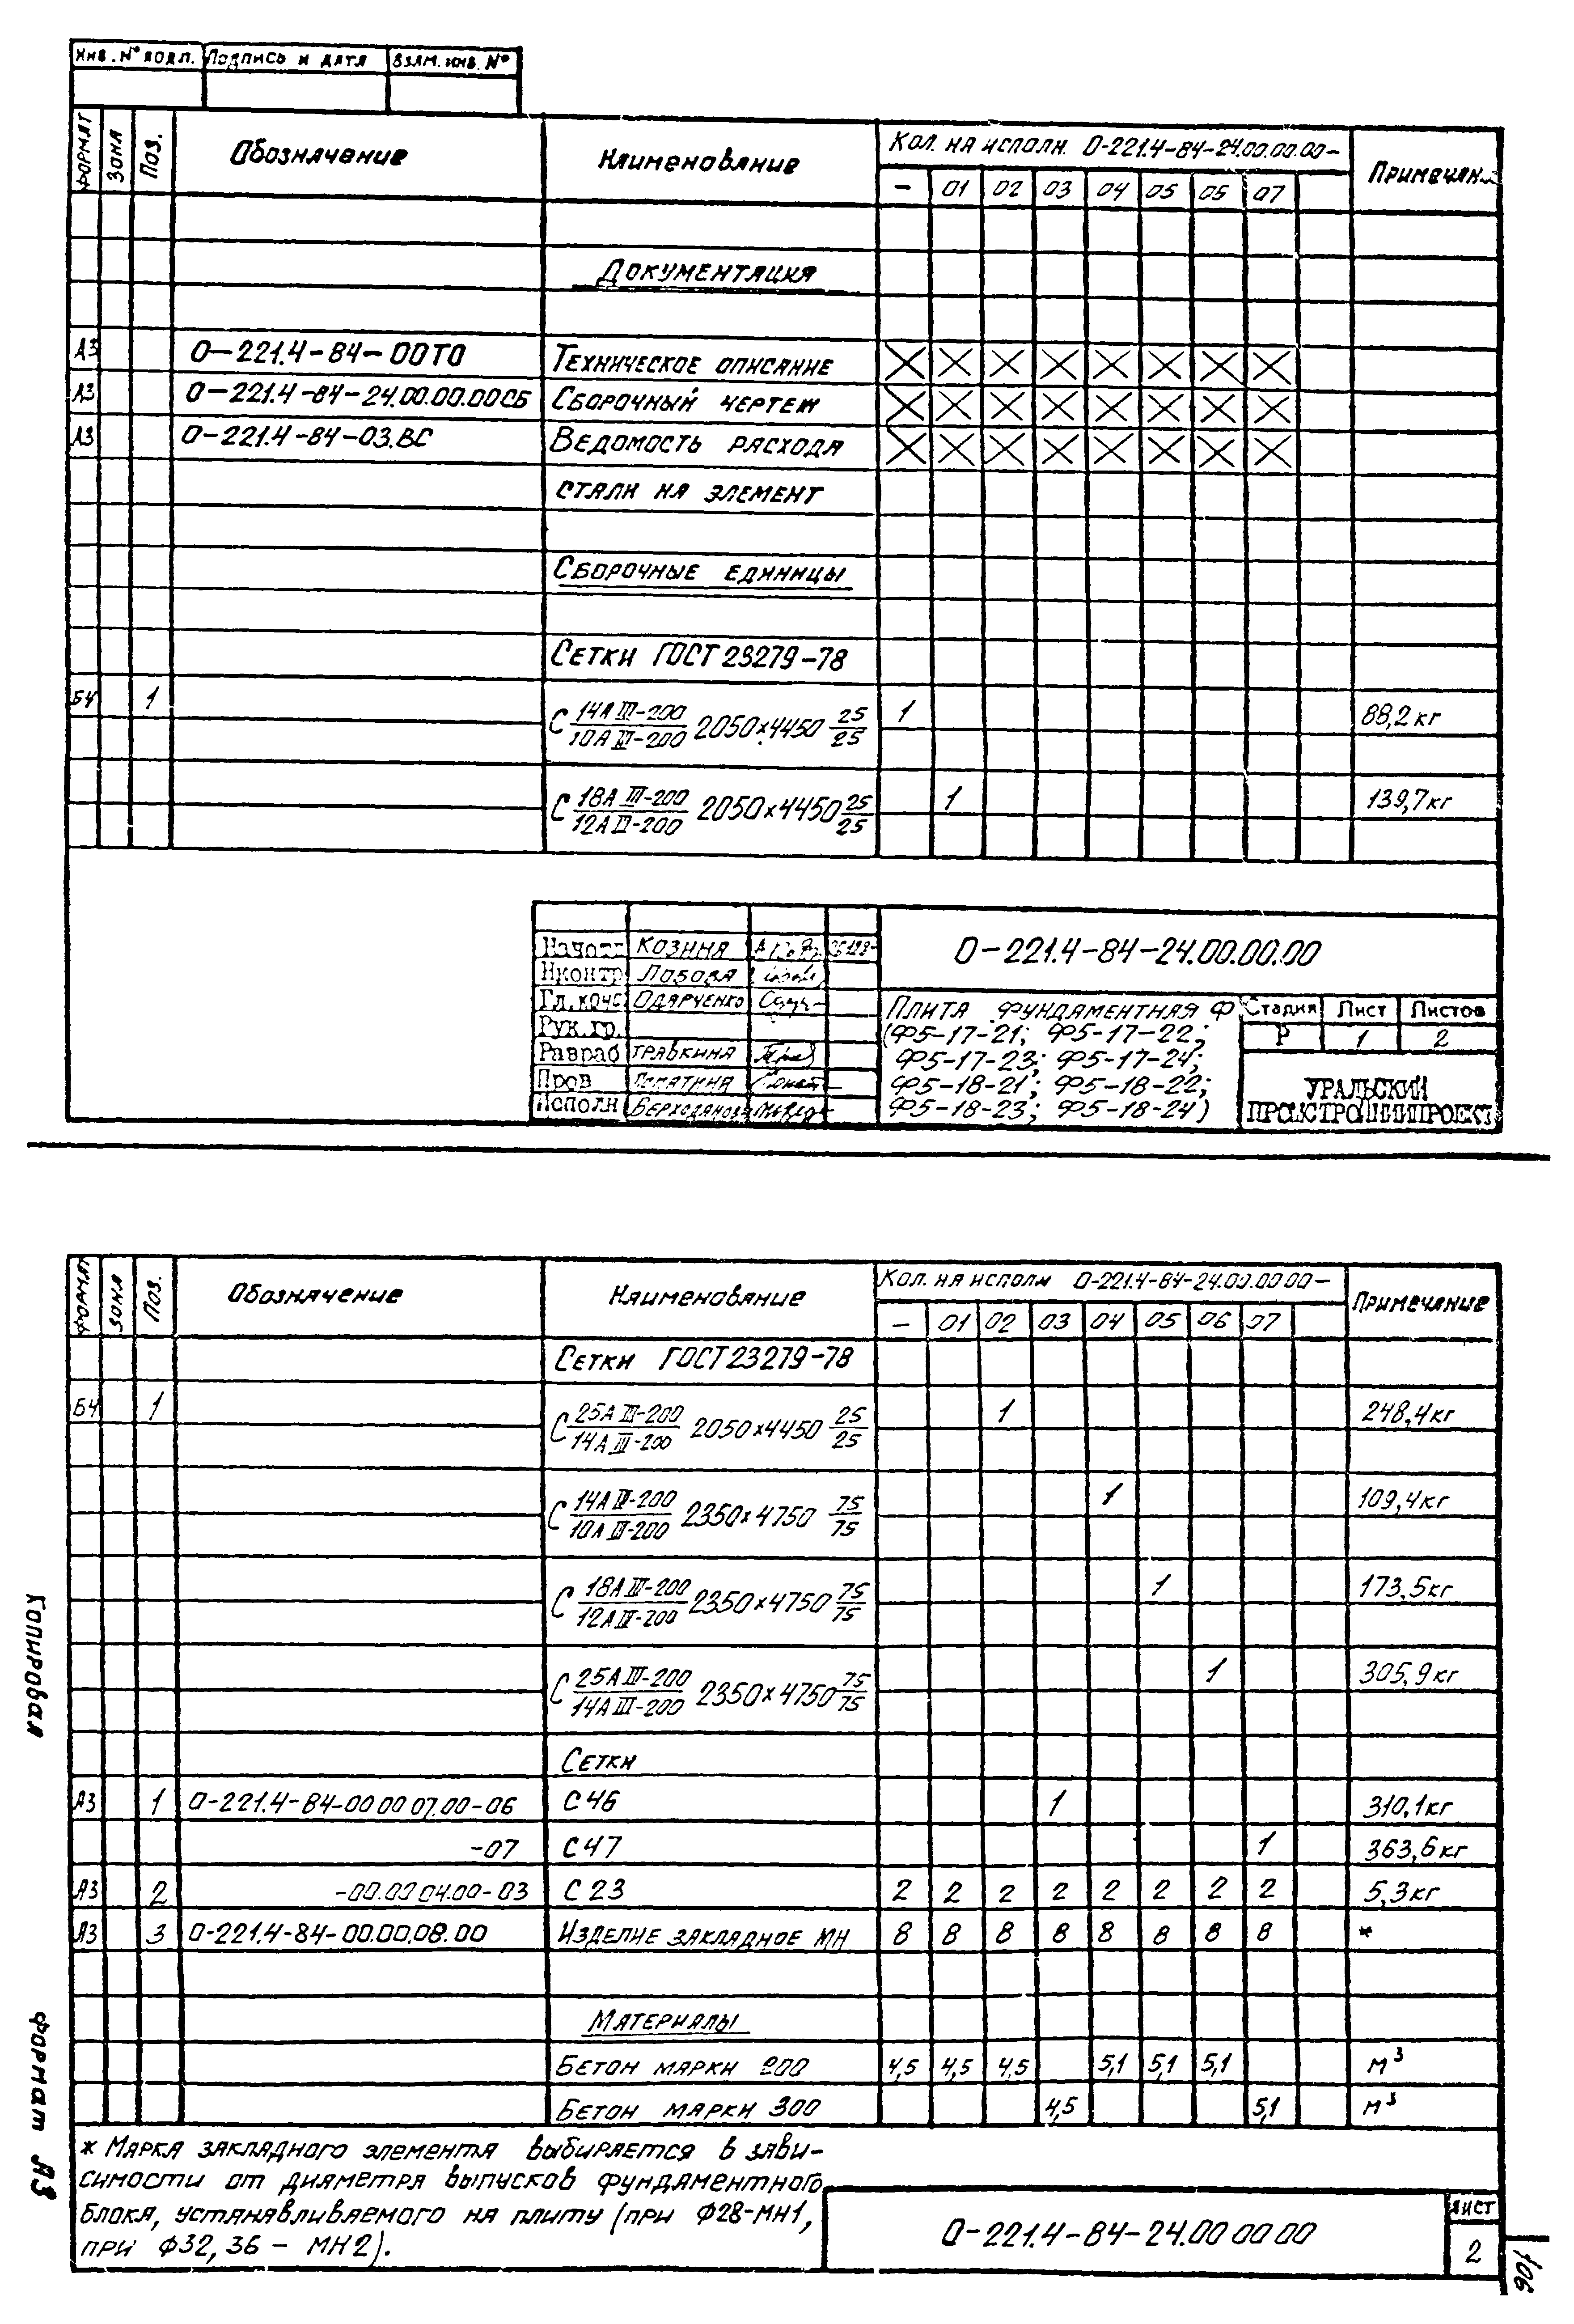 Инв. № подл. Подпись и дата Взам. инв. №
Формат Зона Поз. Обозначение Наименование Кол. на исполн. О-221.4-84-24.00.00.00- Примечан.
- 01 02 03 04 05 06 07
Документация
А3 О-221.4-84-00ТО Техническое описание
А3 О-221.4-84-24.00.00.00СБ Сборочный чертеж
А3 О-221.4-84-03.ВС Ведомость расхода
стали на элемент
Сборочные единицы
Сетки ГОСТ 23279-78
Б4 1 С 14АIII-200/10АIII-200 2050×4450 25/25 1 88,2кг
С 18АIII-200/12АIII-200 2050×4450 25/25 1 139,7кг
О-221.4-84-24.00.00.00
Начотд Козина
Нконтр Лобова
Гл.конс Одярченко
Рук.гр.
Разраб Травкина
Пров
Исполн
Плита фундаментная Ф
(Ф5-17-21; Ф5-17-22;
Ф5-17-23; Ф5-17-24;
Ф5-18-21; Ф5-18-22;
Ф5-18-23; Ф5-18-24)
Стадия Лист Листов
Р 1 2
УРАЛЬСКИЙ
ПРОМСТРОЙНИИПРОЕКТ
Формат Зона Поз. Обозначение Наименование Кол. на исполн О-221.4-84-24.00.00 00- Примечание
- 01 02 03 04 05 06 07
Сетки ГОСТ 23279-78
Б4 1 С 25АIII-200/14АIII-200 2050×4450 25/25 1 248,4кг
С 14АIII-200/10АIII-200 2350×4750 75/75 1 109,4кг
С 18АIII-200/12АIII-200 2350×4750 75/75 1 173,5кг
С 25АIII-200/14АIII-200 2350×4750 75/75 1 305,9кг
Сетки
А3 1 О-221.4-84-00 00 07.00-06 С46 1 310,1кг
-07 С47 1 363,6кг
А3 2 -00.00 04.00-03 С23 2 2 2 2 2 2 2 2 5,3кг
А3 3 О-221.4-84-00.00.08.00 Изделие закладное МН 8 8 8 8 8 8 8 8 *
Материалы
Бетон марки 200 4,5 4,5 4,5 5,1 5,1 5,1 м³
Бетон марки 300 4,5 5,1 м³
* Марка закладного элемента выбирается в зави-
симости от диаметра выпусков фундаментного
блока, устанавливаемого на плиту (при Ф28-МН1,
при Ф32, 36 - МН2).
О-221.4-84-24.00 00 00
Лист
2
Копировал
формат А3
106